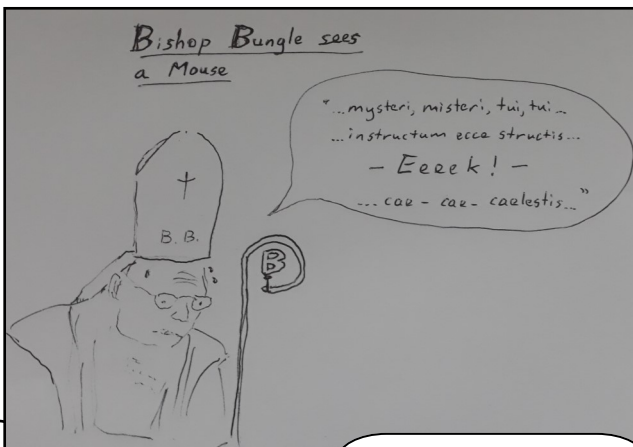 Bishop Bungle sees
a Mouse
"...mysteri, misteri, tui, tui...
...instructum ecce structis...
— Eeeek! —
... cae - cae - caelestis..."
B. B.
B